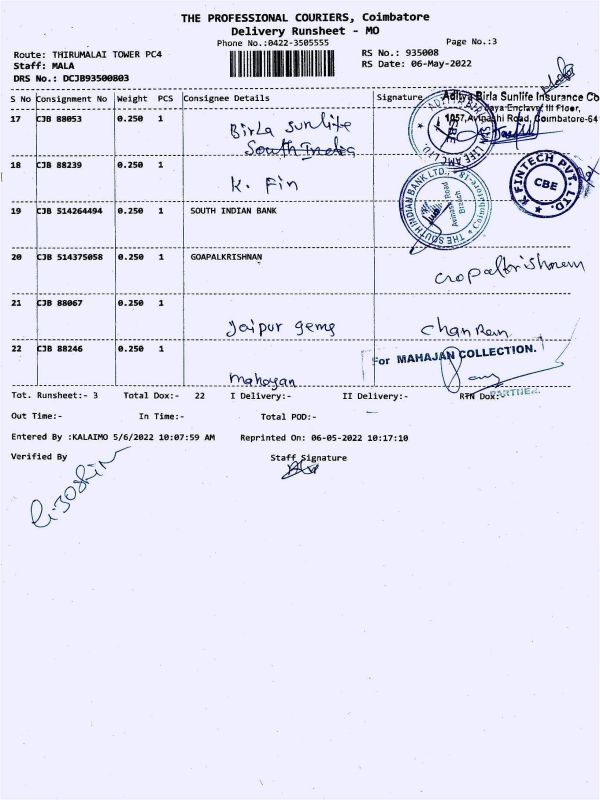 THE PROFESSIONAL COURIERS, Coimbatore
Delivery Runsheet - MO
Phone No.:0422-3505555
Page No.:3
Route: THIRUMALAI TOWER PC4
RS No.: 935008
Staff: MALA
RS Date: 06-May-2022
DRS No.: DCJB93500803
S No Consignment No Weight PCS Consignee Details Signature
Aditya Birla Sunlife Insurance Co
Enclave, III Floor,
1057, Avinashi Road, Coimbatore-641
17 CJB 88053 0.250 1 Birla Sunlife
South India
ADITYA BIRLA SUN LIFE AMC LTD.
CBE
18 CJB 88239 0.250 1 K. Fin
K FINTECH PVT. LTD.
CBE
19 CJB 514264494 0.250 1 SOUTH INDIAN BANK
THE SOUTH INDIAN BANK LTD., Coimbatore-18
Avinashi Road
Branch
20 CJB 514375058 0.250 1 GOAPALKRISHNAN Gopalkrishnan
21 CJB 88067 0.250 1 Jaipur gems
22 CJB 88246 0.250 1 mahajan
For MAHAJAN COLLECTION.
PARTNER.
Tot. Runsheet:- 3 Total Dox:- 22 I Delivery:- II Delivery:- RTN Dox:-
Out Time:- In Time:- Total POD:-
Entered By :KALAIMO 5/6/2022 10:07:59 AM Reprinted On: 06-05-2022 10:17:10
Verified By Staff Signature